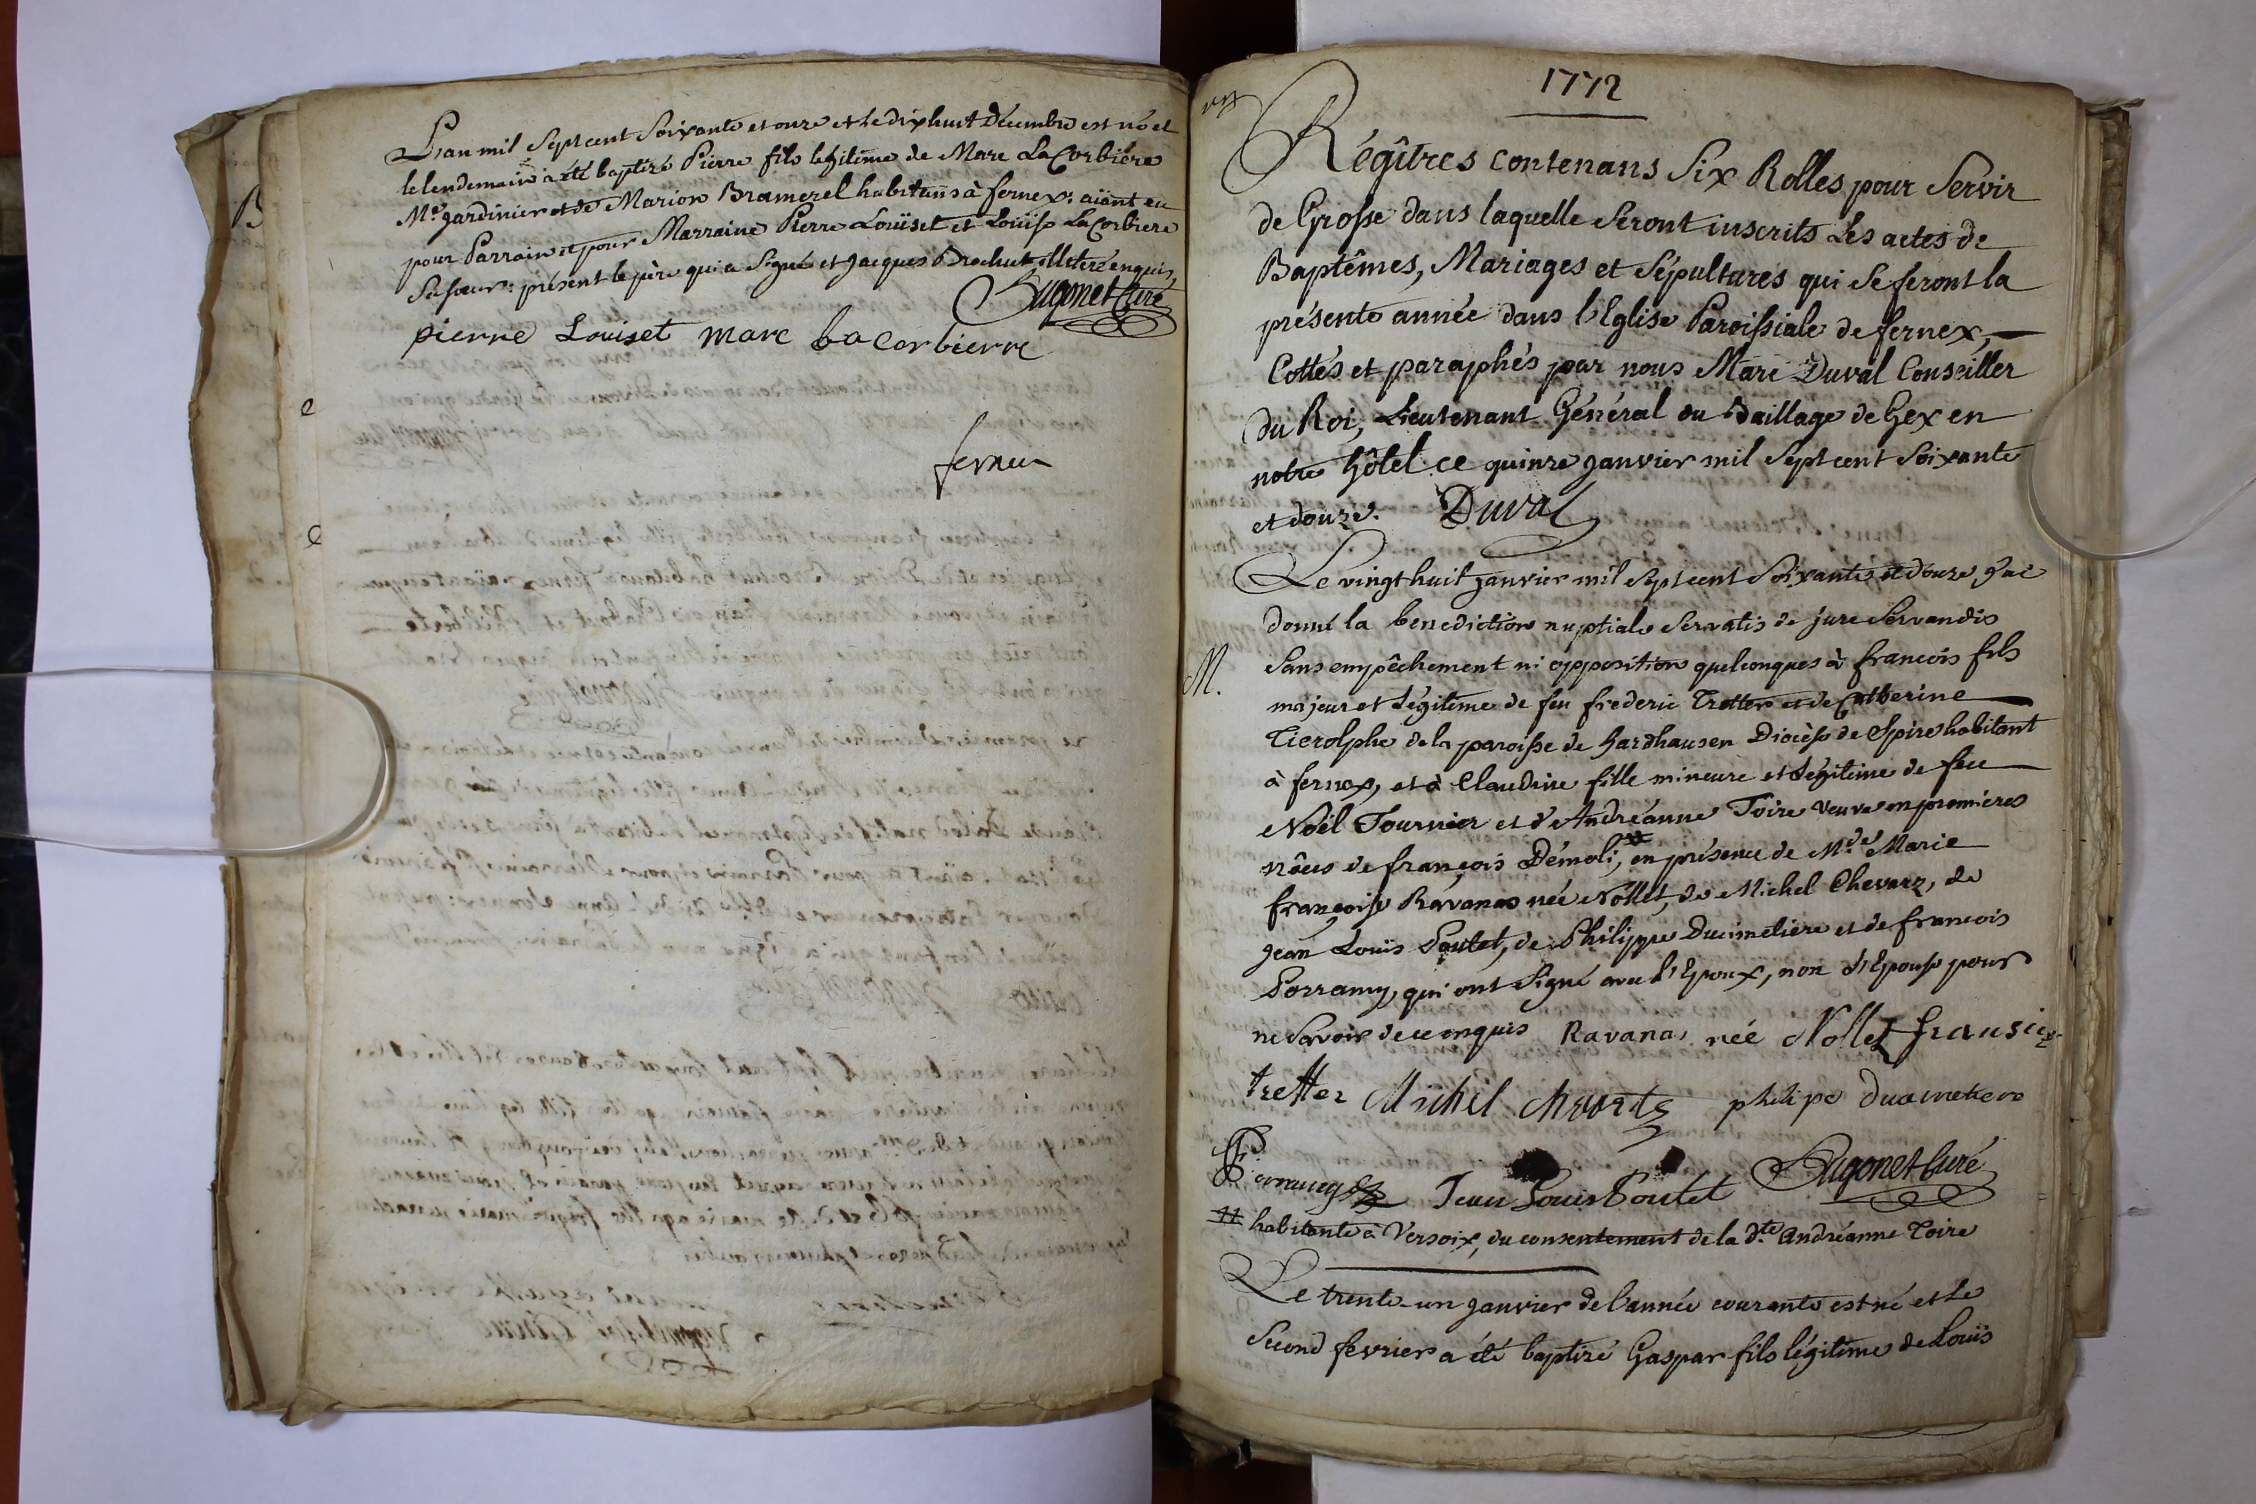 L'an mil Sept cent Soixante et onze et le dix huit Décembre est né et
le lendemain a été baptizé Pierre fils légitime de Marc La Corbiere
Me jardinier et de Marion Bramerel habitans à fernex: aiant eu
pour Parrain et pour Marraine Pierre Louiset et Louise La Corbiere
Sa soeur: présent le père qui a Signé et Jacques Brochut illiteré enquis,
Hugonet Curé
pierre Louiset marc la corbierre
fernex
1772
Régîtres contenans Six Rolles pour Servir
de Grosse dans laquelle Seront inscrits Les actes de
Baptêmes, Mariages et Sépultures qui Se feront la
présente année dans l'Eglise Paroissiale de fernex,
Cottés et paraphés par nous Marc Duval Conseiller
du Roi, Lieutenant Général au Baillage de Gex en
notre hôtel ce quinze janvier mil Sept cent Soixante
et douze. Duval
Le vingt huit janvier mil Sept cent Soixante et douze j'ai
donné la benediction nuptiale Servatis de jure Servandis
M.
Sans empêchement ni opposition quelconques à francois fils
majeur et Légitime de feu frederic Tretter et de Catherine
Tierolphe de la paroisse de hardhausen Diocèse de Spire habitant
à fernex, et à Claudine fille mineure et Légitime de feu
Noël Tournier et d'Andréanne Toire veuve en premieres
nôces de françois Démoli, # en présence de Mde Marie
françoise Ravanas née Nollet, de Michel Chevarz, de
jean Louis Poutet, de Philippe Ducimetiere et de francois
Porramy, qui ont Signé avec l'Epoux, non l'Epouse pour
ne Savoir de ce enquis Ravanas née Nollet
tretter Michel philipe Ducimetiere
Jean Louis Poutet Hugonet Curé
# habitante à Versoix, du consentement de la dte Andréanne Toire
Le trente-un janvier de l'année courante est né et Le
Second fevrier a été baptizé Gaspar fils légitime de Louis